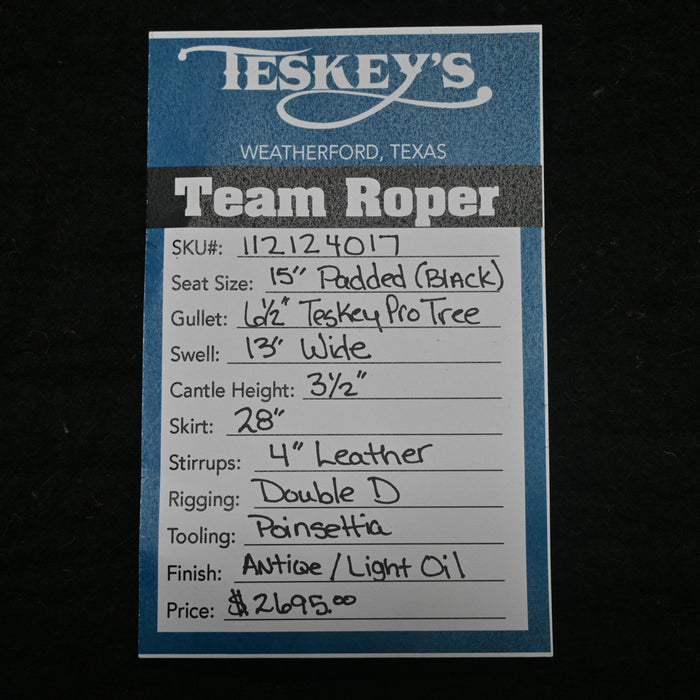 TESKEY'S
WEATHERFORD, TEXAS
Team Roper
SKU#: 112124017
Seat Size: 15" Padded (BlACK)
Gullet: 6½" Teskey Pro Tree
Swell: 13" Wide
Cantle Height: 3½"
Skirt: 28"
Stirrups: 4" Leather
Rigging: Double D
Tooling: Poinsettia
Finish: ANTiQe / Light Oil
Price: $2695.00